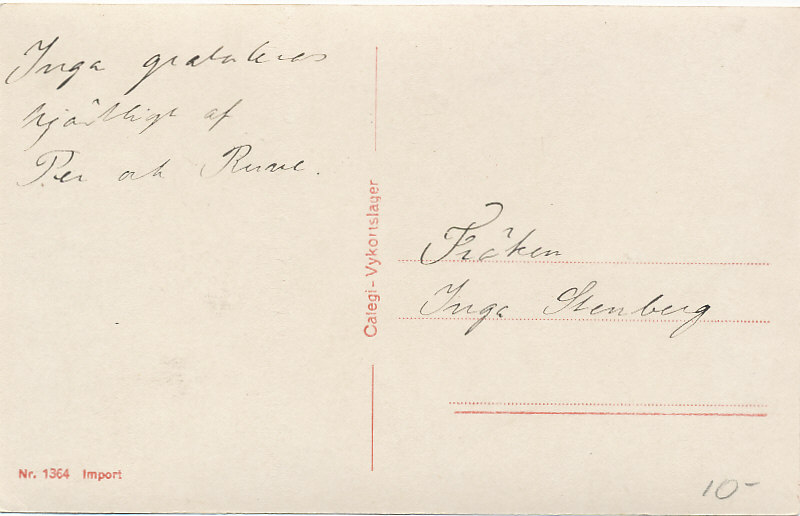 Inga gratuleras
hjärtligt af
Per och Rune.
Calegi-Vykortslager
Fröken
Inga Stenberg
Nr. 1364 Import
10-